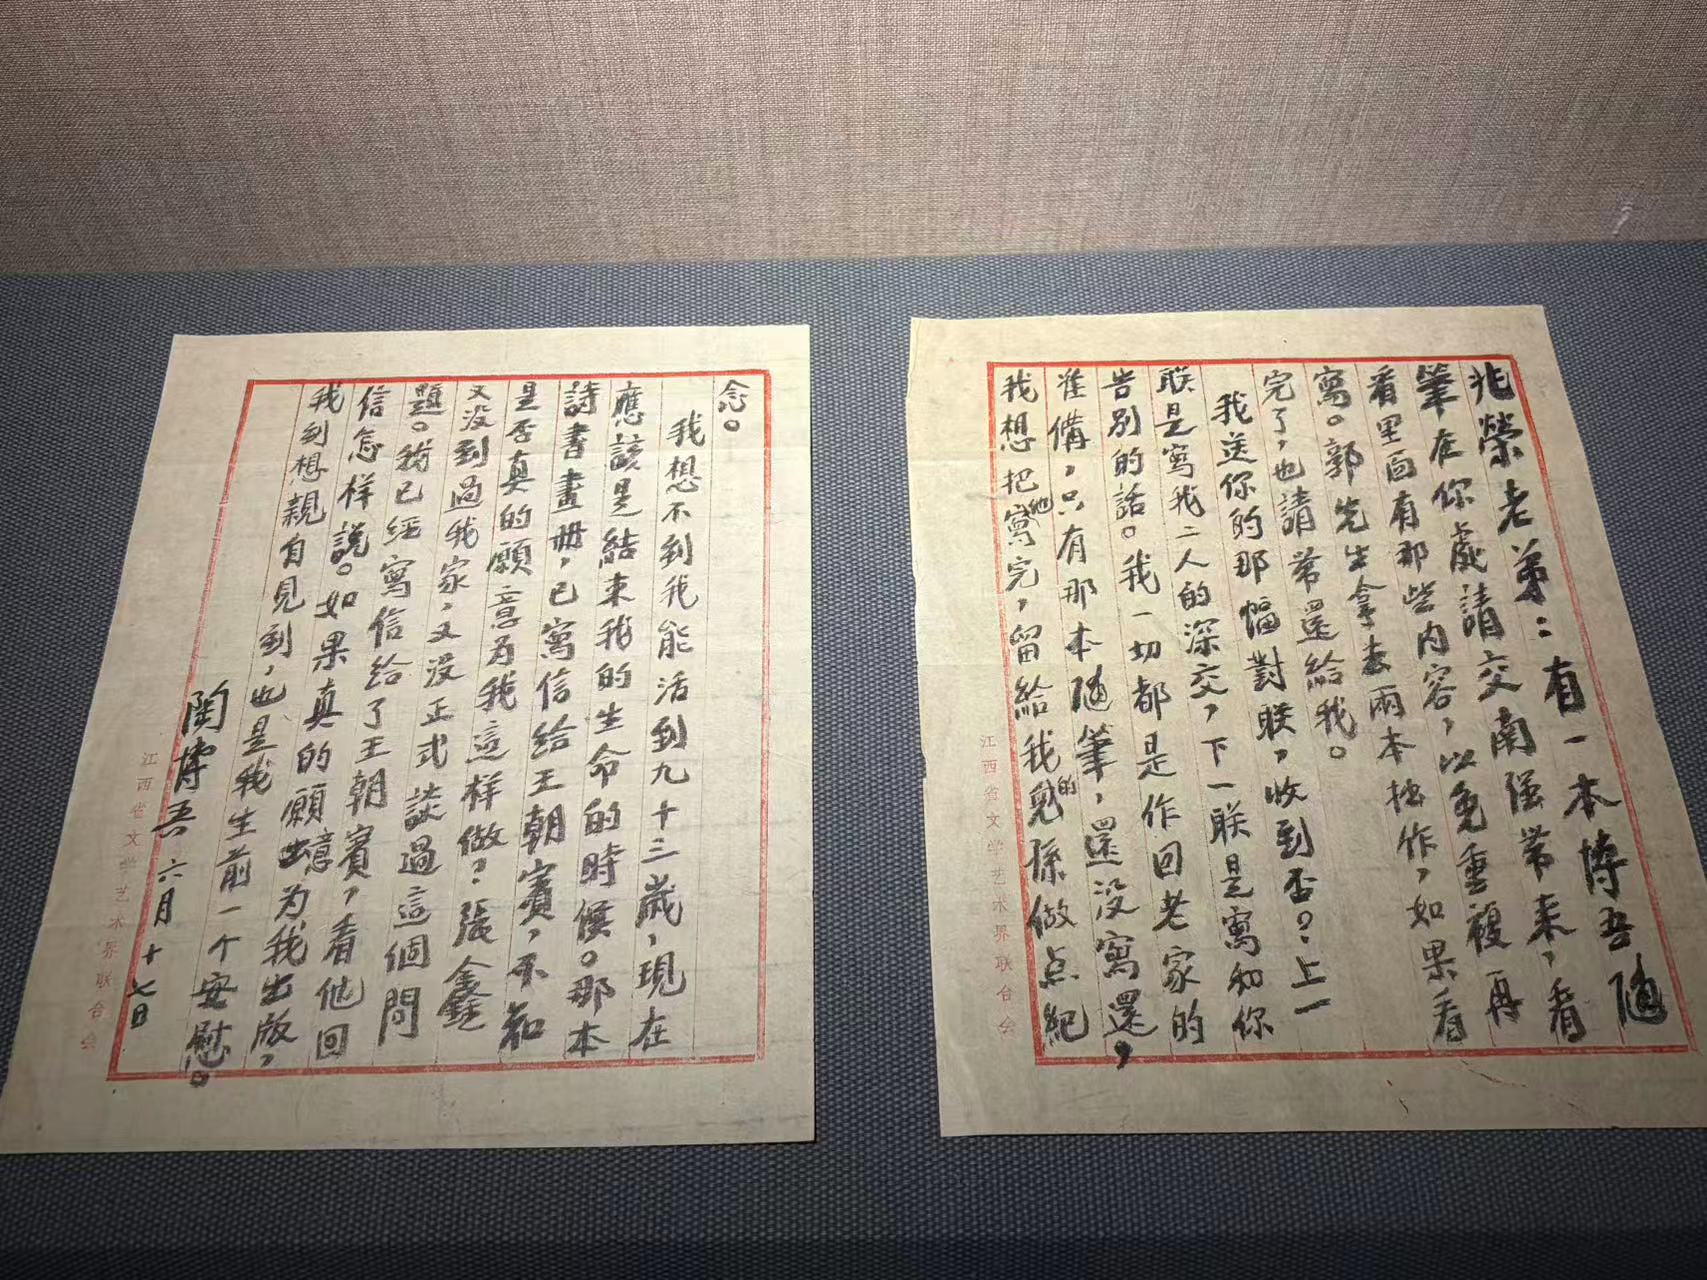 兆榮老弟：有一本博吾隨
筆在你處請交南强帶来，看
看里面有那些内容，以免重複再
寫。郭先生拿去兩本拙作，如果看
完了，也請帶還給我。
我送你的那幅對联，收到否？上一
联是寫我二人的深交，下一联是寫和你
告别的話。我一切都是作回老家的
准備，只有那本隨筆，還没寫還，
我想把他寫完，留給我的兒孫做点紀
江西省文学艺术界联合会
念。
我想不到我能活到九十三歲，現在
應該是結束我的生命的時候。那本
詩書畫册，已寫信給王朝賓，不知
是否真的願意为我這样做？張鑫
又没到過我家，又没正式談過這個問
題。我已经寫信給了王朝賓，看他回
信怎样說。如果真的願意为我出版，
我到想親自見到，也是我生前一个安慰。
陶博吾 六月十七日
江西省文学艺术界联合会